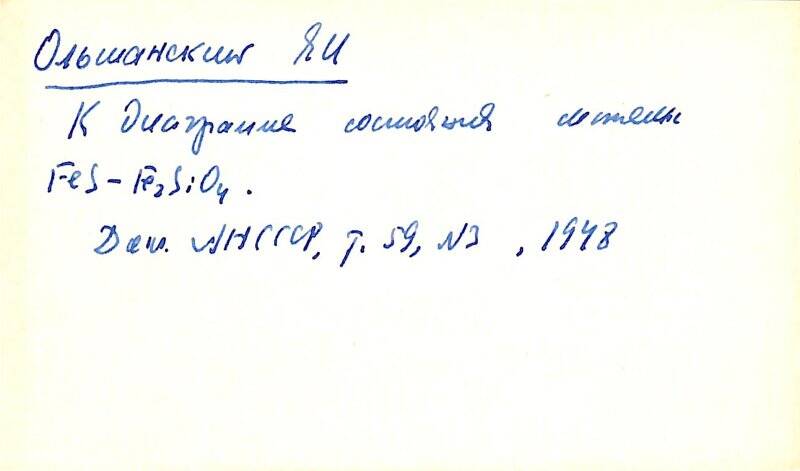 Ольшанский ЯИ
К диаграмме состояния системы
FeS – Fe₂SiO₄.
Док. АНСССР, т. 59, N3, 1948